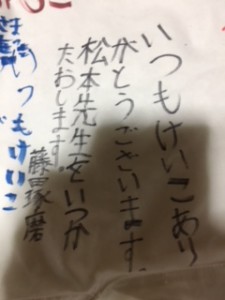 いつもけいこあり
がとうございます。
松本先生をいつか
たおします。
藤塚磨
いつもけいこ